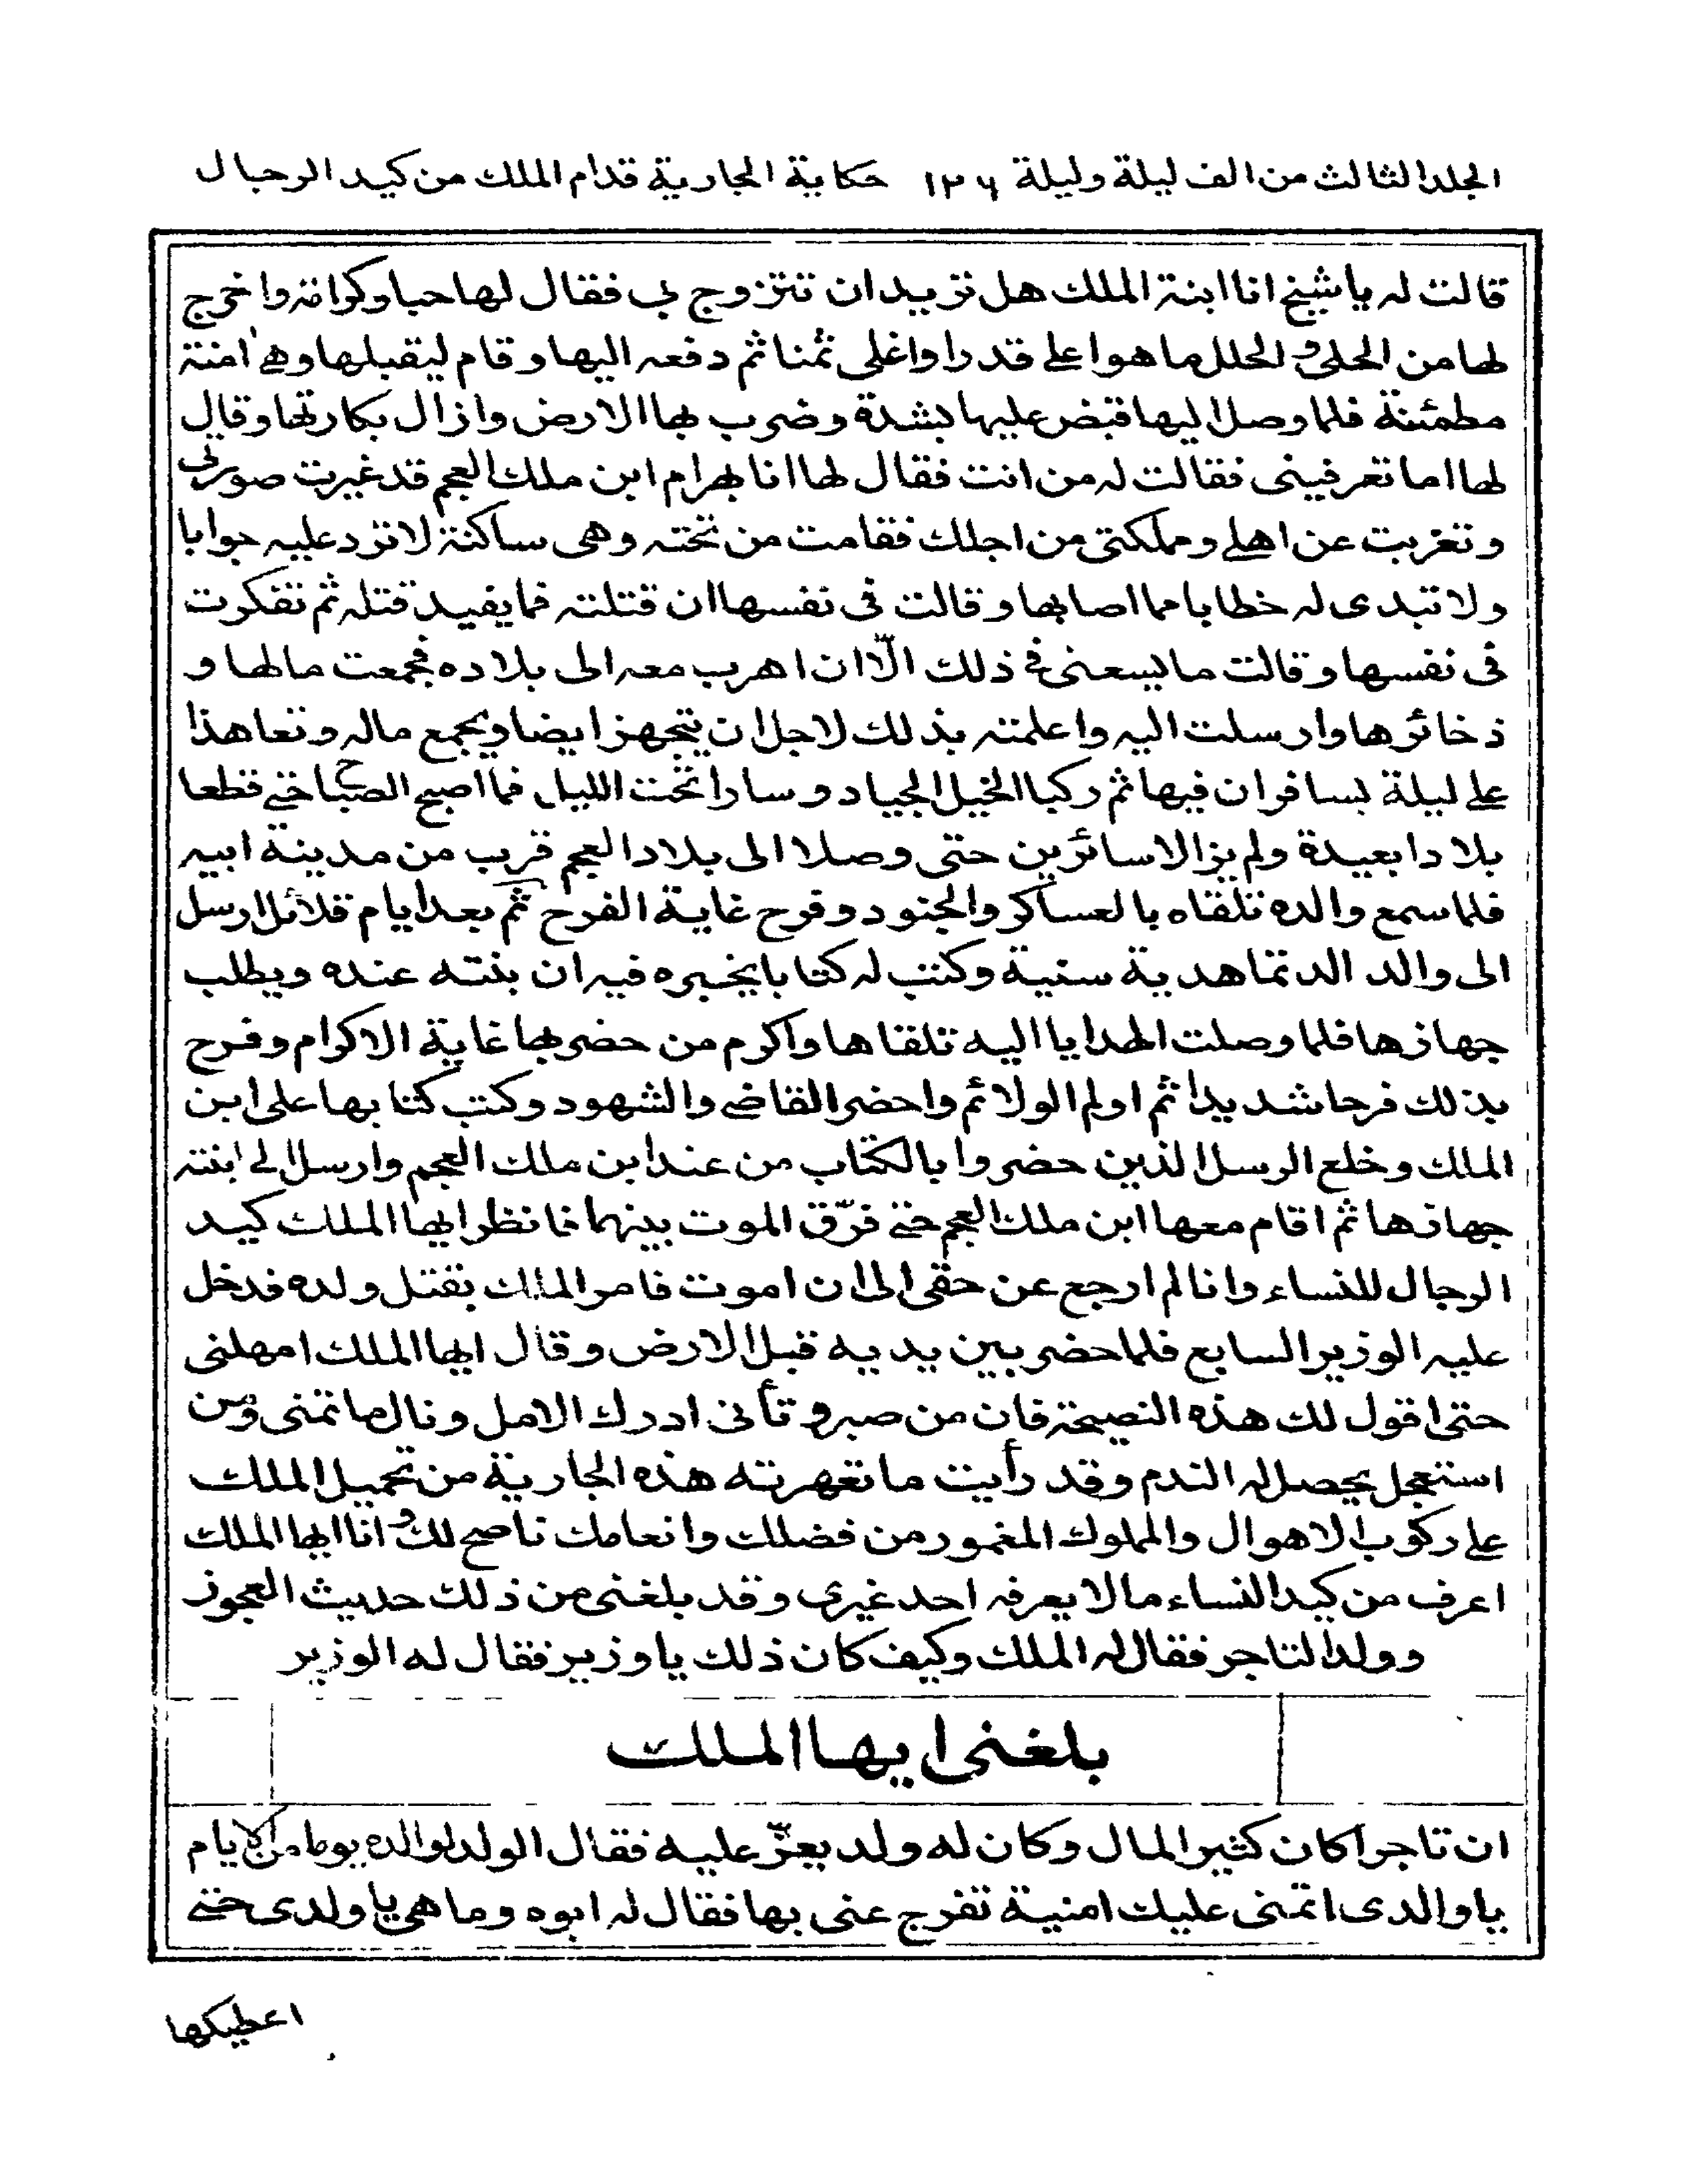 الجلد الثالث من الف ليلة وليلة ١٢٦ حكاية الجارية قدام الملك من كيد الرجال
قالت له يا شيخ انا ابنة الملك هل تريد ان تتزوج بي فقال لها حبا وكرامة واخرج
لها من الحلى والحلل ما هو اعلى قدرا واغلى ثمنا ثم دفعه اليها وقام ليقبلها وهى امنة
مطمئنة فلما وصل اليها قبض عليها بشدة وضرب بها الارض وازال بكارتها وقال
لها اما تعرفيني فقالت له من انت فقال لها انا بهرام ابن ملك العجم قد غيرت صورتي
وتغربت عن اهلى ومملكتى من اجلك فقامت من تحته وهى ساكتة لا ترد عليه جوابا
ولا تبدى له خطابا مما اصابها وقالت فى نفسها ان قتلته فما يفيد قتله ثم تفكرت
فى نفسها وقالت ما يسعنى فى ذلك الّا ان اهرب معه الى بلاده فجمعت مالها و
ذخائرها وارسلت اليه واعلمته بذلك لاجل ان يتجهز ايضا ويجمع ماله وتعاهذا
على ليلة يسافران فيها ثم ركبا الخيل الجياد وسارا تحت الليل فما اصبح الصباح حتى قطعا
بلادا بعيدة ولم يزالا سائرين حتى وصلا الى بلاد العجم قرب من مدينة ابيه
فلما سمع والده تلقاه بالعساكر والجنود وفرح غاية الفرح ثم بعد ايام قلائل ارسل
الى والد الدتما هدية سنية وكتب له كتابا يخبره فيه ان بنته عنده ويطلب
جهازها فلما وصلت الهدايا اليه تلقاها واكرم من حضر بها غاية الاكرام وفرح
بذلك فرحا شديدا ثم اولم الولائم واحضر القاضى والشهود وكتب كتابها على ابن
الملك وخلع الرسل الذين حضروا بالكتاب من عند ابن ملك العجم وارسل الى ابنته
جهازها ثم اقام معها ابن ملك العجم حتى فرّق الموت بينهما فانظر ايها الملك كيد
الرجال للنساء وانا لم ارجع عن حقى الى ان اموت فامر الملك بقتل ولده فدخل
عليه الوزير السابع فلما حضر بين يديه قبل الارض وقال ايها الملك امهلنى
حتى اقول لك هذه النصيحة فان من صبر وتأنى ادرك الامل ونال ما تمنى ومن
استعجل يحصل له الندم وقد رأيت ما تعهرته هذه الجارية من تحميل الملك
على ركوب الاهوال والمملوك المغمور من فضلك وانعامك ناصح لك وانا ايها الملك
اعرف من كيد النساء ما لا يعرفه احد غيرى وقد بلغنى من ذلك حديث العجوز
وولد التاجر فقال له الملك وكيف كان ذلك يا وزير فقال له الوزير
بلغنى ايها الملك
ان تاجرا كان كثير المال وكان له ولد يعزّ عليه فقال الولد لوالده يوما من الايام
يا والدى اتمنى عليك امنية تفرج عنى بها فقال له ابوه وما هى يا ولدى حتى
اعطيكها